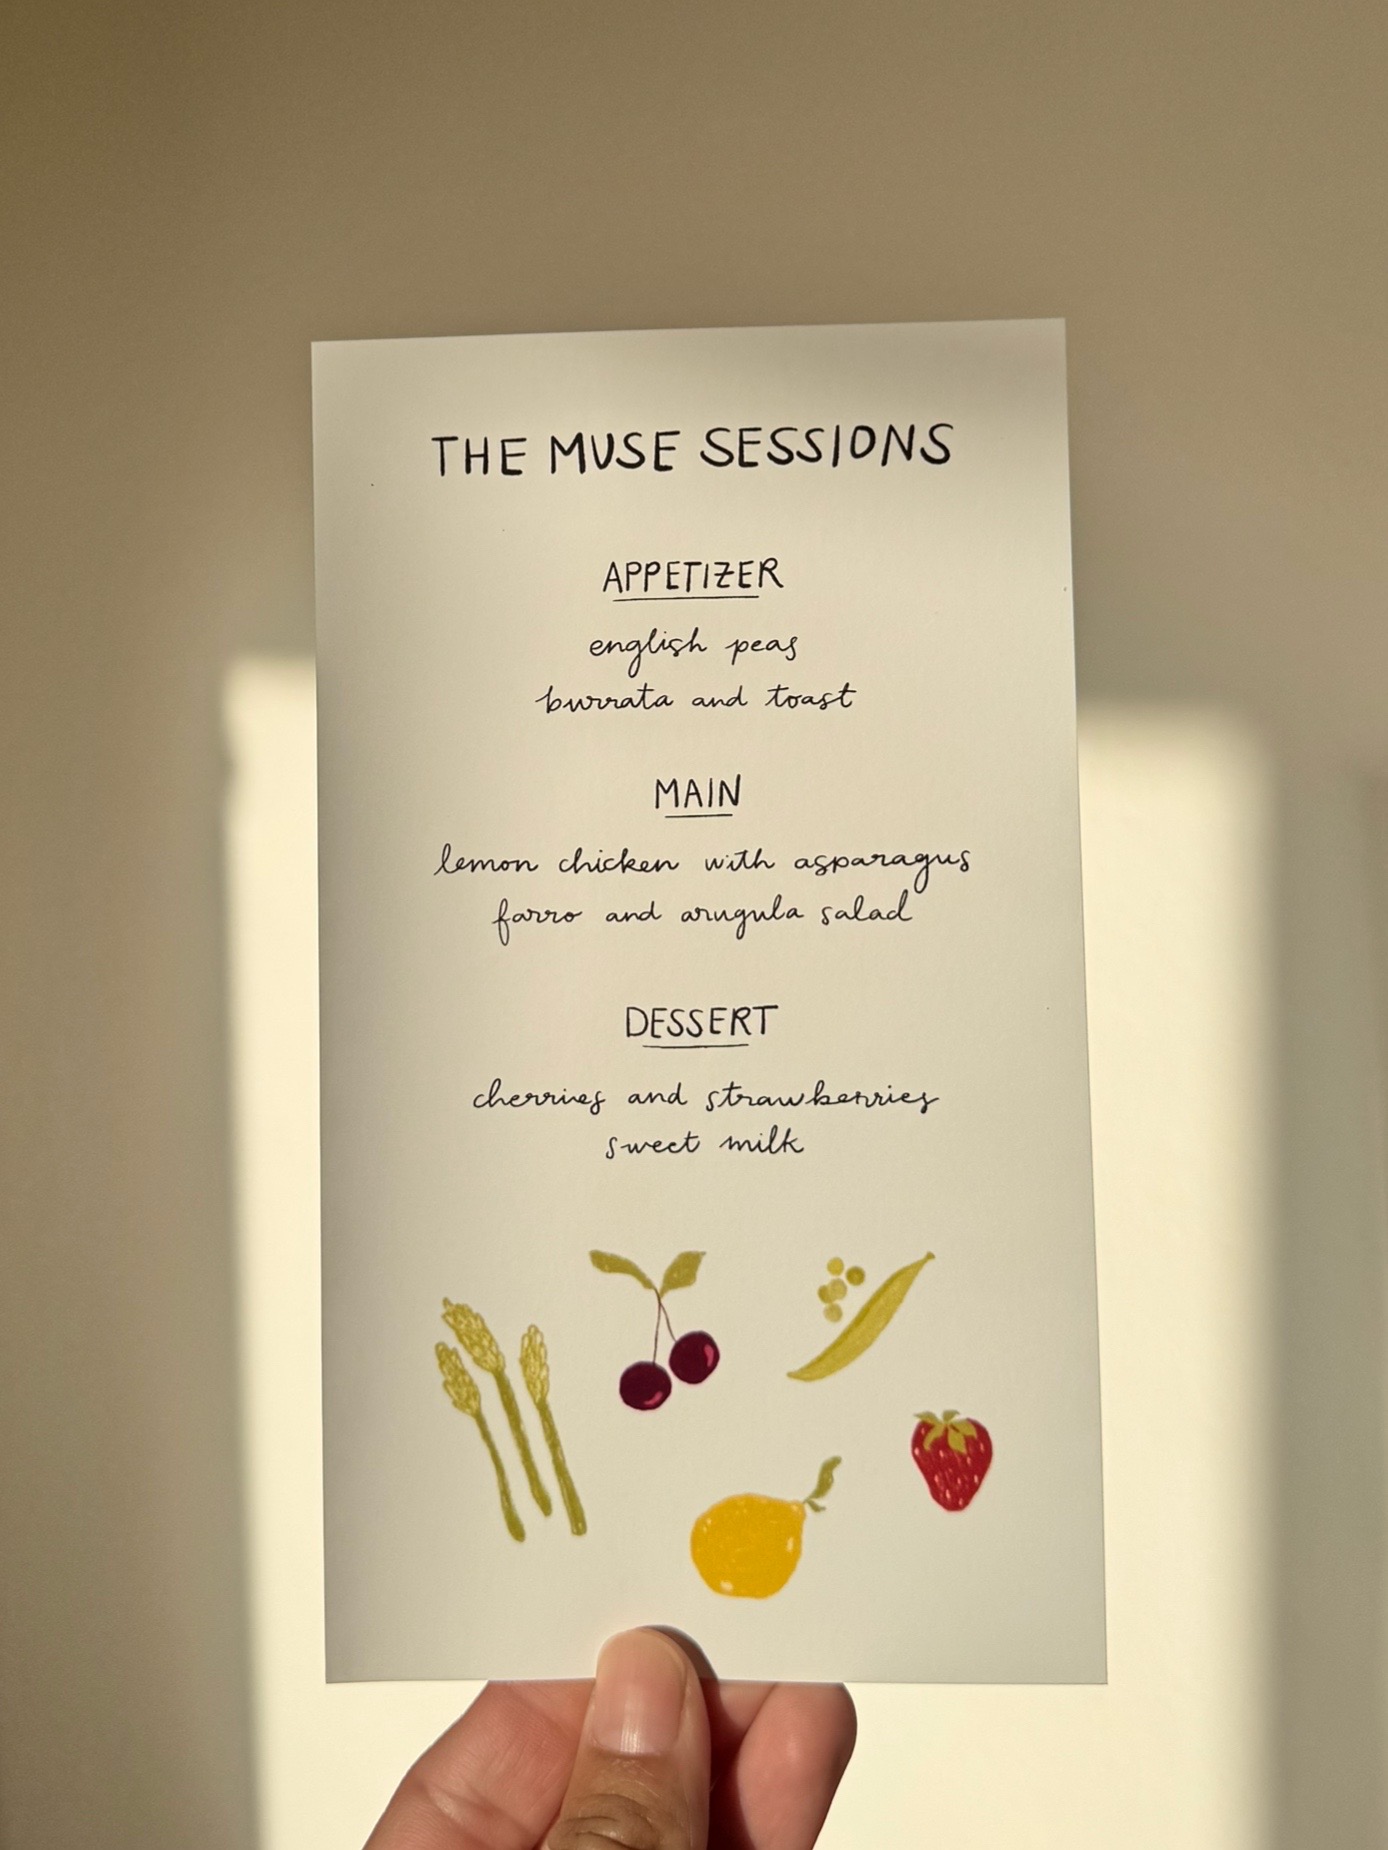 THE MUSE SESSIONS
APPETIZER
english peas
burrata and toast
MAIN
lemon chicken with asparagus
farro and arugula salad
DESSERT
cherries and strawberries
sweet milk